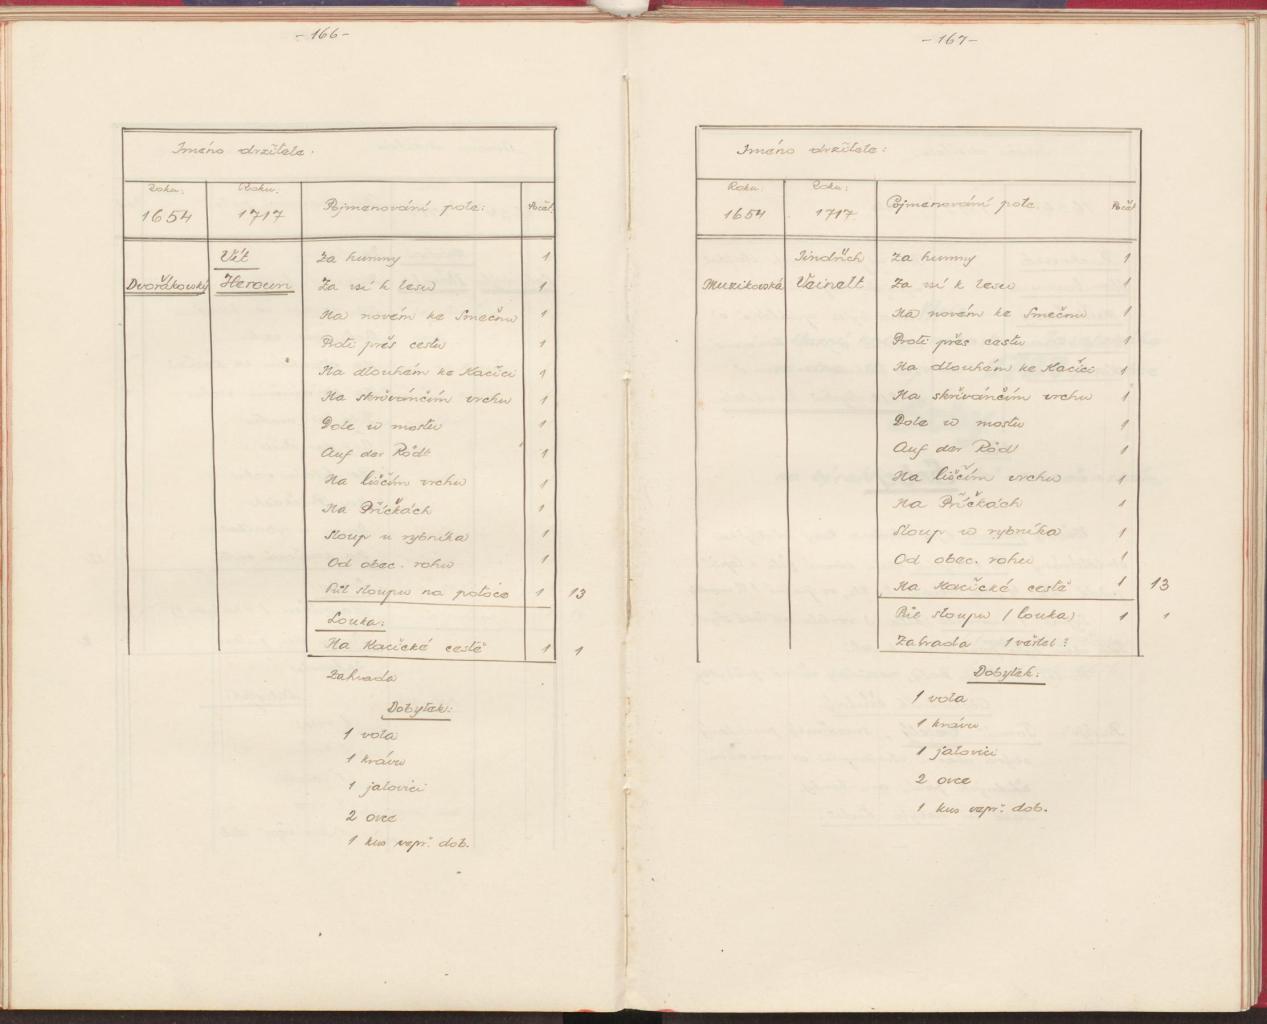 - 166 -
Jméno držitele.
Roku: Roku: Pojmenování pole: Počet.
1654 1717
Vít Za humny 1
Dvořákovský Za vsí k lesu 1
Na novém ke Smečnu 1
Proti přes cestu 1
Na dlouhém ke Kačici 1
Na skřivánčím vrchu 1
Dole u mostu 1
Auf der Röd 1
Na liščím vrchu 1
Na Příčkách 1
Sloup u rybníka 1
Od obec. rohu 1
Půl sloupu na potoce 1 13
Louka:
Na Kačické cestě 1 1
Zahrada
Dobytek:
1 vola
1 krávu
1 jalovici
2 ovce
1 kus vepř. dob.
- 167 -
Jméno držitele:
Roku: Roku: Pojmenování pole. Počet
1654 1717
Jindřich Za humny 1
Muzikovská Veinelt Za vsí k lesu 1
Na novém ke Smečnu 1
Proti přes cestu 1
Na dlouhém ke Kačici 1
Na skřivánčím vrchu 1
Dole u mostu 1
Auf der Röd 1
Na liščím vrchu 1
Na Příčkách 1
Sloup u rybníka 1
Od obec. rohu 1
Na Kačické cestě 1 13
Půl sloupu (louka) 1 1
Zahrada 1 věrtel
Dobytek:
1 vola
1 krávu
1 jalovici
2 ovce
1 kus vepř. dob.